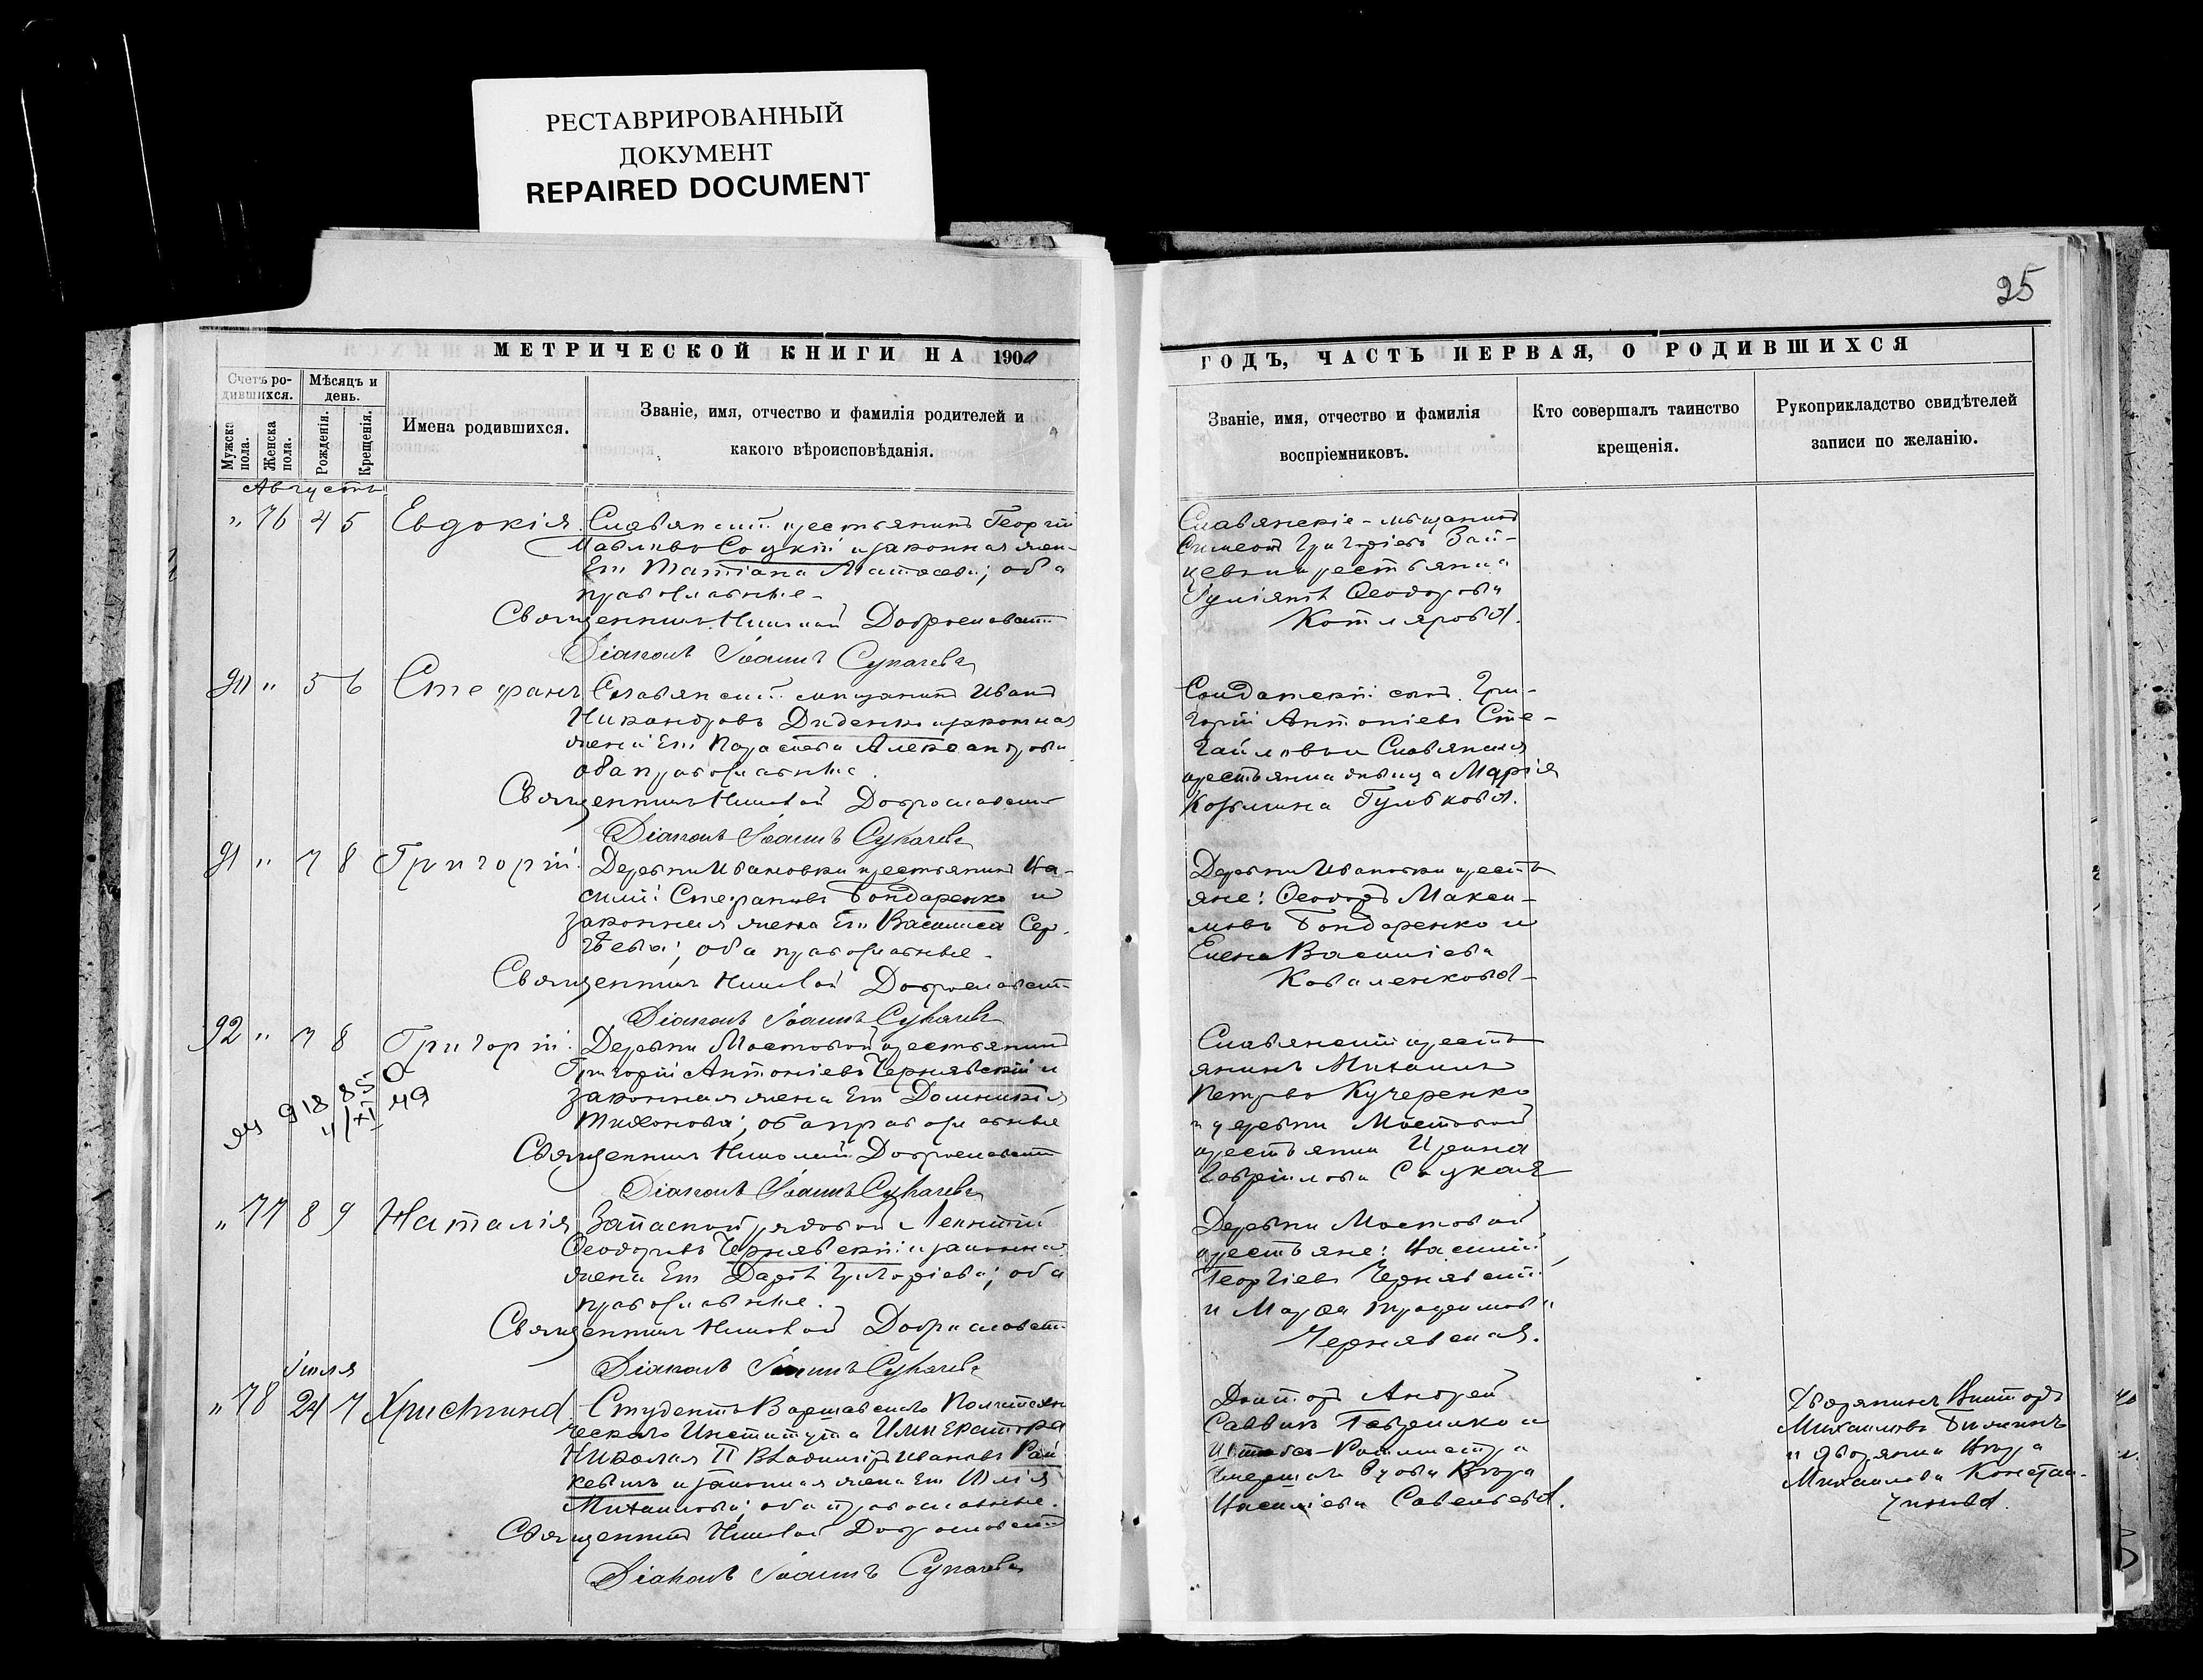 РЕСТАВРИРОВАННЫЙ
ДОКУМЕНТ
REPAIRED DOCUMENT
25
МЕТРИЧЕСКОЙ КНИГИ НА 190
ГОДЪ, ЧАСТЬ ПЕРВАЯ, О РОДИВШИХСЯ
Счетъ ро-
дившихся.
Мѣсяцъ и
день.
Мужска
пола.
Женска
пола.
Рожденія.
Крещенія.
Имена родившихся.
Званіе, имя, отчество и фамилія родителей и
какого вѣроисповѣданія.
Званіе, имя, отчество и фамилія
воспріемниковъ.
Кто совершалъ таинство
крещенія.
Рукоприкладство свидѣтелей
записи по желанію.
Августъ
„ 76 4 5 Евдокія
Славянскій крестьянинъ Георгій
Соцкій и законная жен-
Его Татіана; оба
православные
Священникъ Николай Доброславскій
Діаконъ Іоаннъ Сукачевъ
Славянскіе мѣщанинъ
Симеонъ Григоріевъ Зай-
цевъ и крестьянка
Іуліанія Ѳеодорова
Котлярова.
90 „ 5 6 Стефанъ
Славянскій мѣщанинъ Иванъ
Никаноровъ Диденко и законная
жена Его Параскева Александрова
оба православные.
Священникъ Николай Доброславскій
Діаконъ Іоаннъ Сукачевъ
Солдатскій сынъ Гри-
горій Антоніевъ Сте-
и Славянская
крестьянка дѣвица Марія
Козьмина Гулькова.
91 „ 7 8 Григорій
Деревни Ивановки крестьянинъ Ва-
силій Стефановъ Бондаренко и
законная жена Его Василиса Сер-
гѣева; оба православные
Священникъ Николай Доброславскій
Діаконъ Іоаннъ Сукачевъ
Деревни Ивановки кресть
яне: Ѳеодоръ Макси-
мовъ Бондаренко и
Елена Василіева
Коваленкова
92 „ 7 8 Григорій
Деревни Мостовой крестьянинъ
Григорій Антоніевъ Чернявскій и
законная жена Его Домникія
Тихонова; оба православные
Священникъ Николай Доброславскій
Діаконъ Іоаннъ Сукачевъ
Славянскій кресть
янинъ Михаилъ
Петровъ Кучеренко
и деревни Мостовой
крестьянка Ирина
Гавріилова Соцкая
„ 77 8 9 Наталія
Запасной рядовой Леонтій
Ѳеодоровъ Чернявскій и законная
жена Его Дарія Григоріева; оба
православные.
Священникъ Николай Доброславскій
Діаконъ Іоаннъ Сукачевъ
Деревни Мостовой
крестьяне: Василій
Георгіевъ Чернявскій
и Марѳа Трофимова
Чернявская.
Іюля
„ 78 24 7 Христина
Студентъ Варшавскаго Политехни
ческаго Института Императора
Николая II Владиміръ Ивановъ Рай
кевичъ и законная жена Его Юлія
Михаилова; оба православные.
Священникъ Николай Доброславскій
Діаконъ Іоаннъ Сукачевъ
Докторъ Андрей
Саввинъ Гаврилко и
Штабсъ-Ротмистра
вдова Вѣра
Василіева Савельева.
Дворянинъ Викторъ
Михаиловъ
и дворянка Вѣра
Михаилова Констан-
тинова.